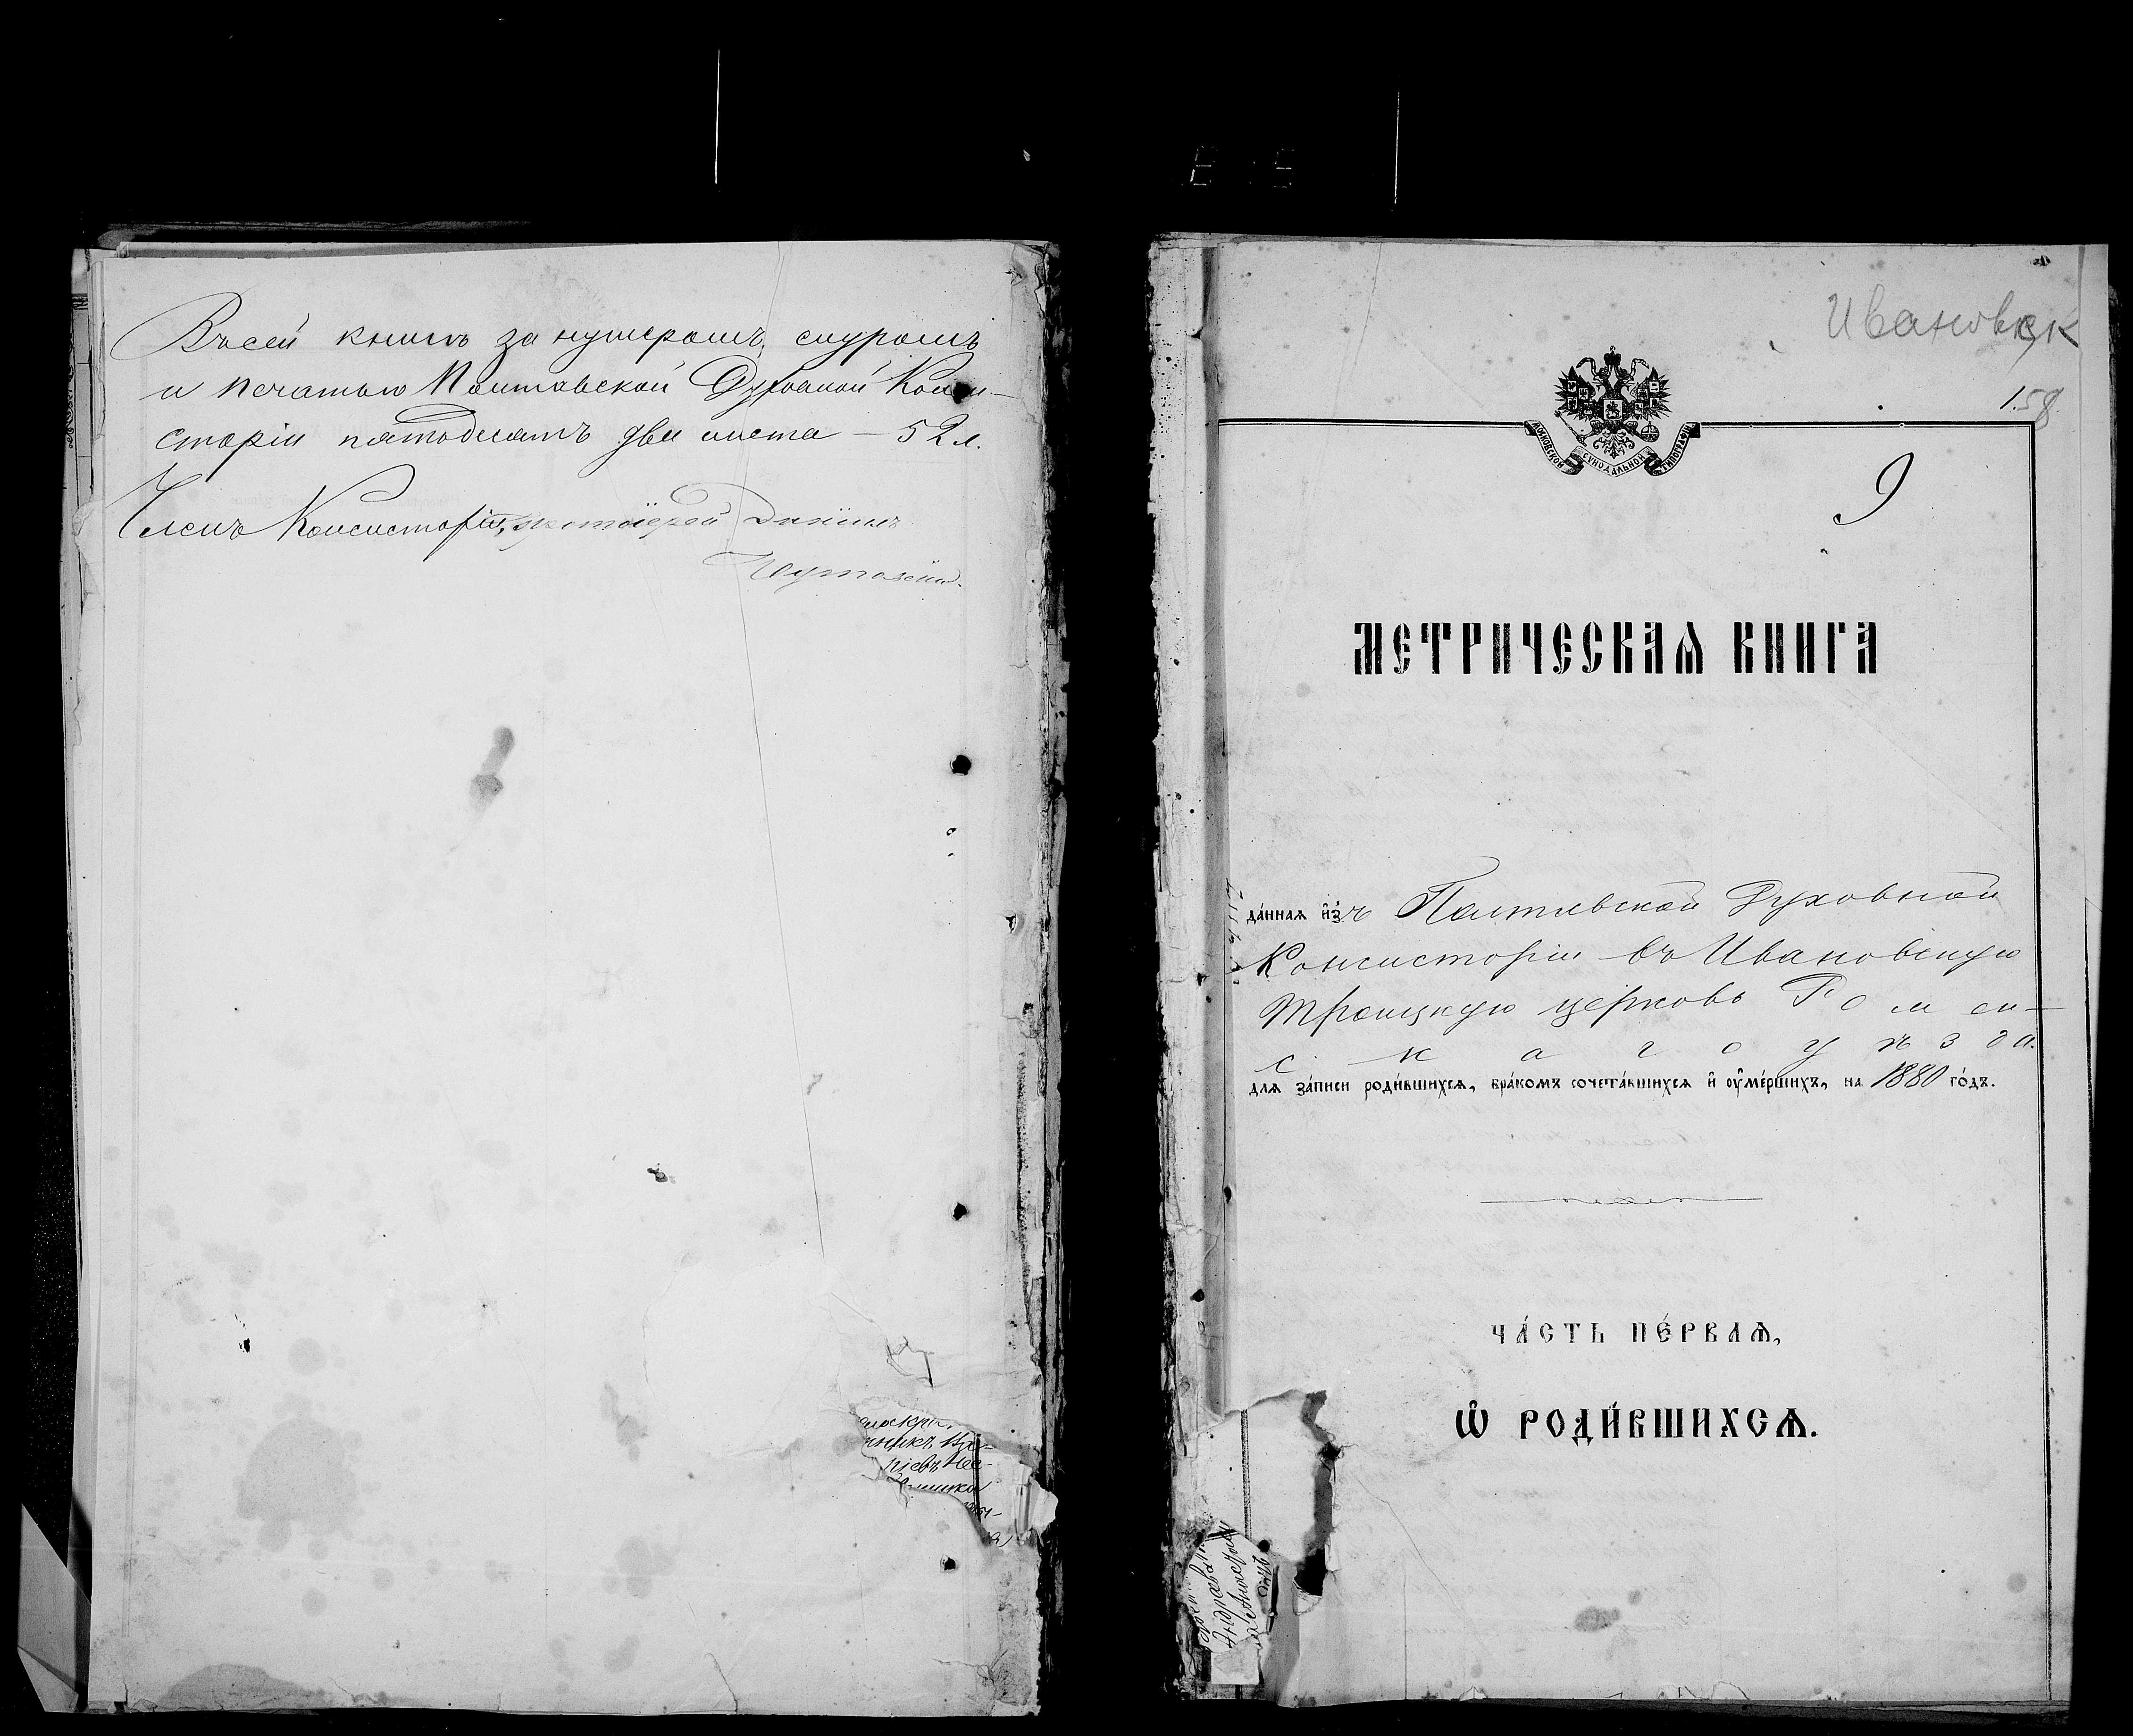 Въ сей книгѣ за нумеромъ, снуромъ
и печатью Полтавской Духовной Конси-
сторіи пятьдесятъ два листа — 52 л.
Членъ Консисторіи, протоіерей
Ивановск
158
9
МОСКОВСКОЙ СѴНОДАЛЬНОЙ ТИПОГРАФІИ
МЕТРИЧЕСКАѦ КНИГА
да́ннаѧ и҆зъ Полтавской Духовной
Консисторіи въ Ивановскую
Троицкую церковь Ромен-
скаго уѣзда
длѧ за́писи роди́вшихсѧ, бра́комъ сочета́вшихсѧ и҆ ᲂу҆ме́ршихъ, на 1880 го́дъ.
ЧА́СТЬ ПЕ́РВАѦ,
Ѡ҆ РОДИ́ВШИХСѦ.